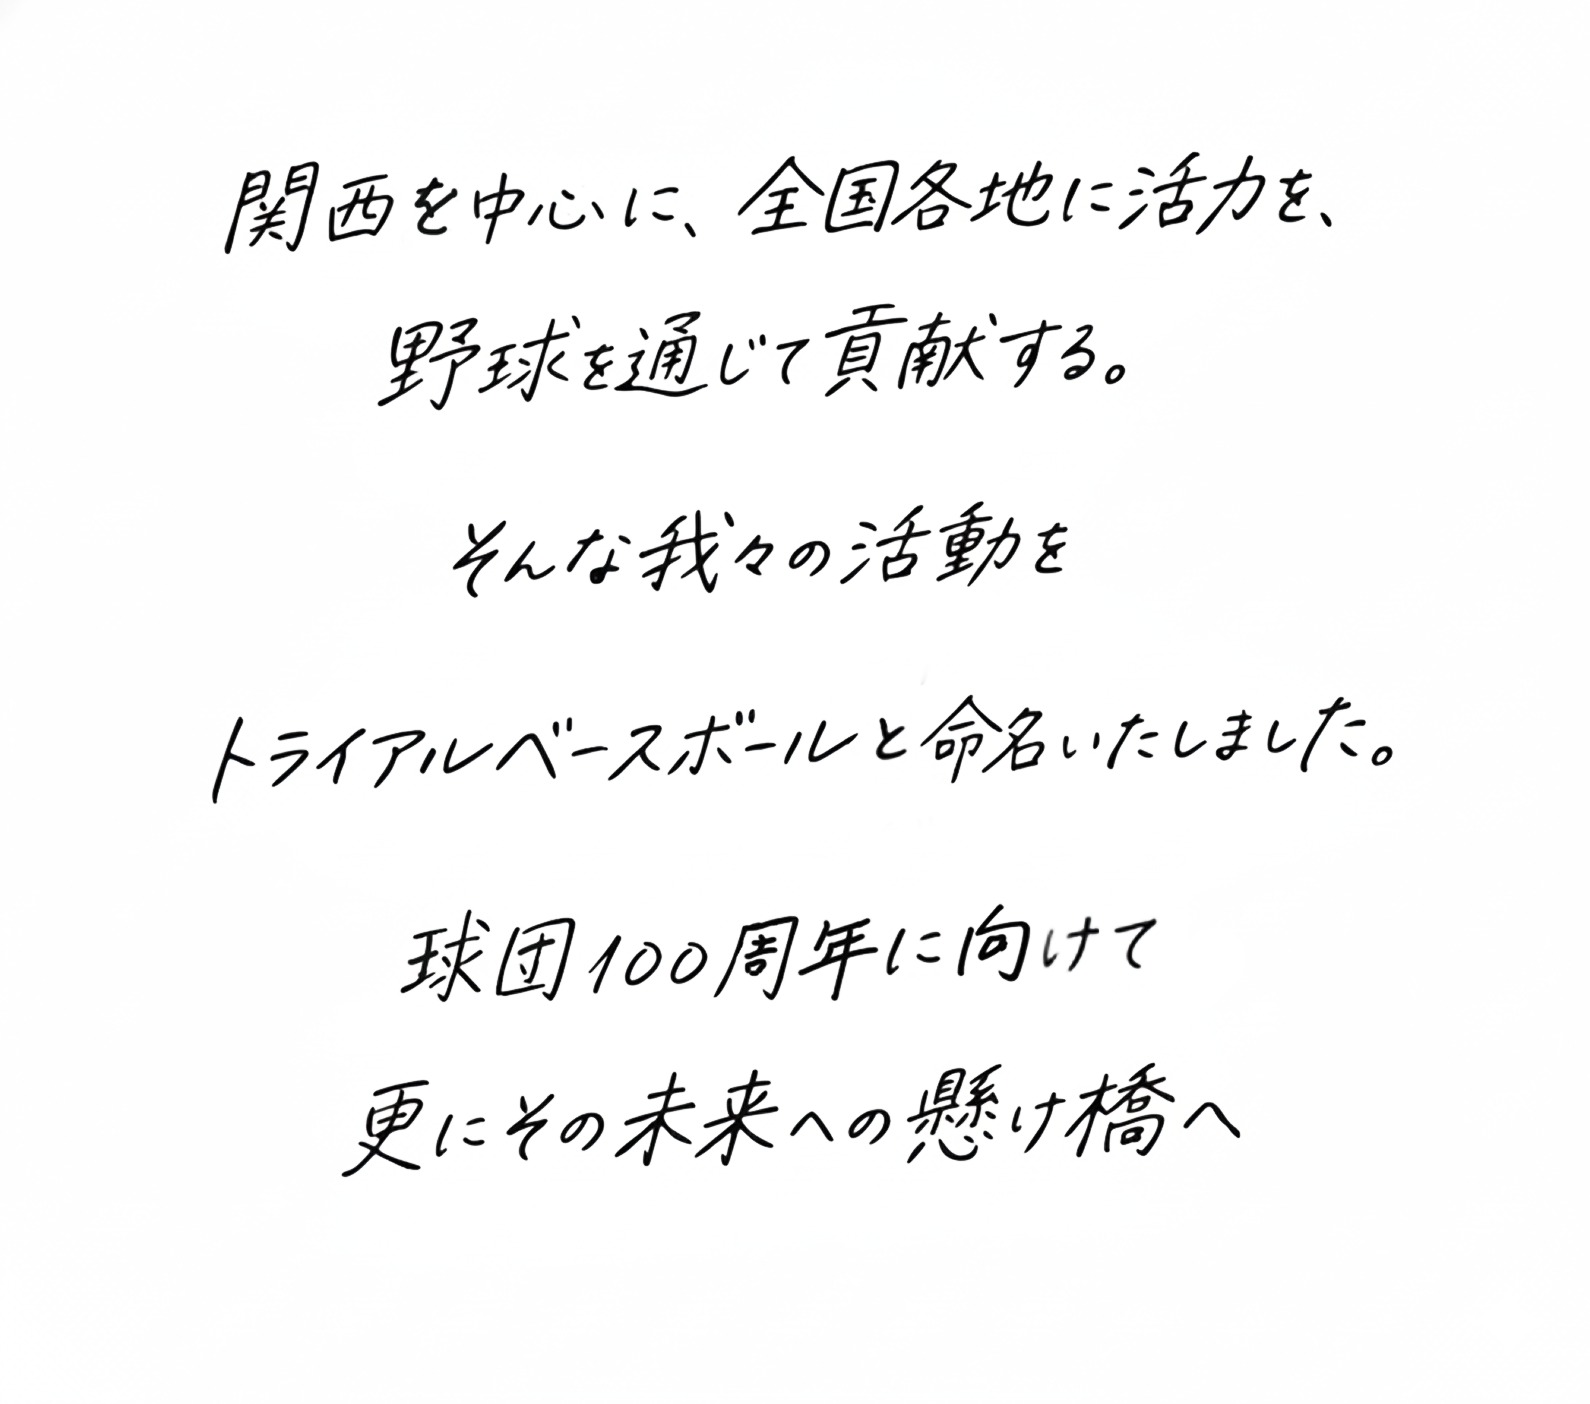 関西を中心に、全国各地に活力を、
野球を通じて貢献する。
そんな我々の活動を
トライアルベースボールと命名いたしました。
球団100周年に向けて
更にその未来への懸け橋へ